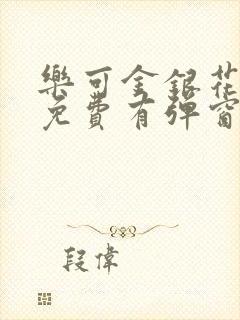 樂可金銀花
免費有彈窗
段偉